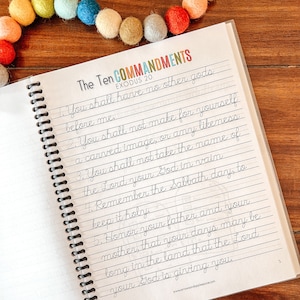 The Ten COMMANDMENTS
EXODUS 20
1. You shall have no other gods
before me.
You shall not make for yourself
a carved image, or any likeness
You shall not take the name of
the Lord your God in vain.
Remember the Sabbath day, to
keep it holy.
Honor your father and your
mother, that your days may be
long in the land that the Lord
your God is giving you.